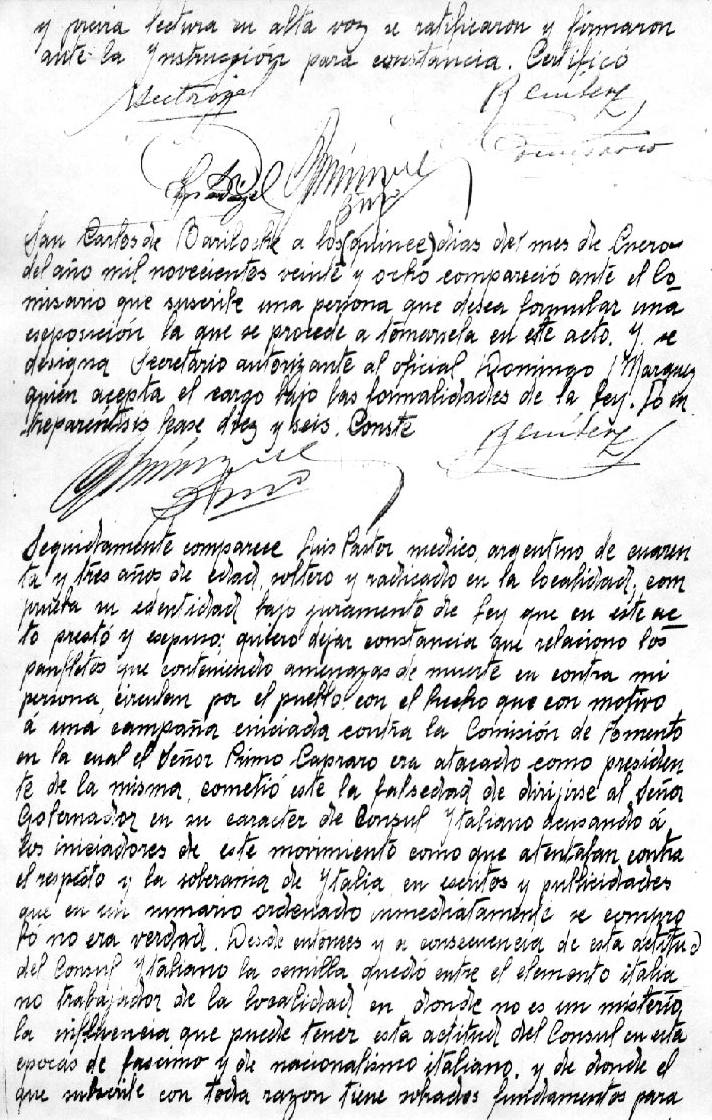 y previa lectura en alta voz se ratificaron y firmaron
ante la Instrucción para constancia. Certifico
San Carlos de Bariloche a los (quince) dias del mes de Enero
del año mil novecientos veinte y ocho compareció ante el Co
misario que suscribe una persona que desea formular una
esposición la que se procede a tomarsela en este acto. Y se
designa Secretario autorizante al oficial Domingo Marquez
quien acepta el cargo bajo las formalidades de la ley. Lo en
treparéntisis lease diez y seis. Conste
Seguidamente comparece Luis Pastor medico, argentino de cuaren
ta y tres años de edad, soltero y radicado en la localidad, com
prueba su edentidad bajo juramento de ley que en este ac
to prestó y espuso; quiero dejar constancia que relaciono los
panfletos que conteniendo amenazas de muerte en contra mi
persona, circulan por el pueblo con el hecho que con motivo
á una campaña iniciada contra la Comisión de Fomento
en la cual el Señor Primo Capraro era atacado como presiden
te de la misma, cometió este la falsedad de dirijirse al Señor
Gobernador en su caracter de Consul Italiano acusando á
los iniciadores de este movimiento como que atentaban contra
el respeto y la soberania de Italia, en escritos y publicidades
que en un sumario ordenado inmediatamente se compro
bó no era verdad. Desde entonces y a consecuencia de esta actitud
del Consul Italiano la semilla quedó entre el elemento italia
no trabajador de la localidad en donde no es un misterio
la influencia que puede tener esta actitud del Consul en esta
epocas de fascimo y de nacionalismo italiano. y de donde el
que subscribe con toda razon tiene sobrados fundamentos para